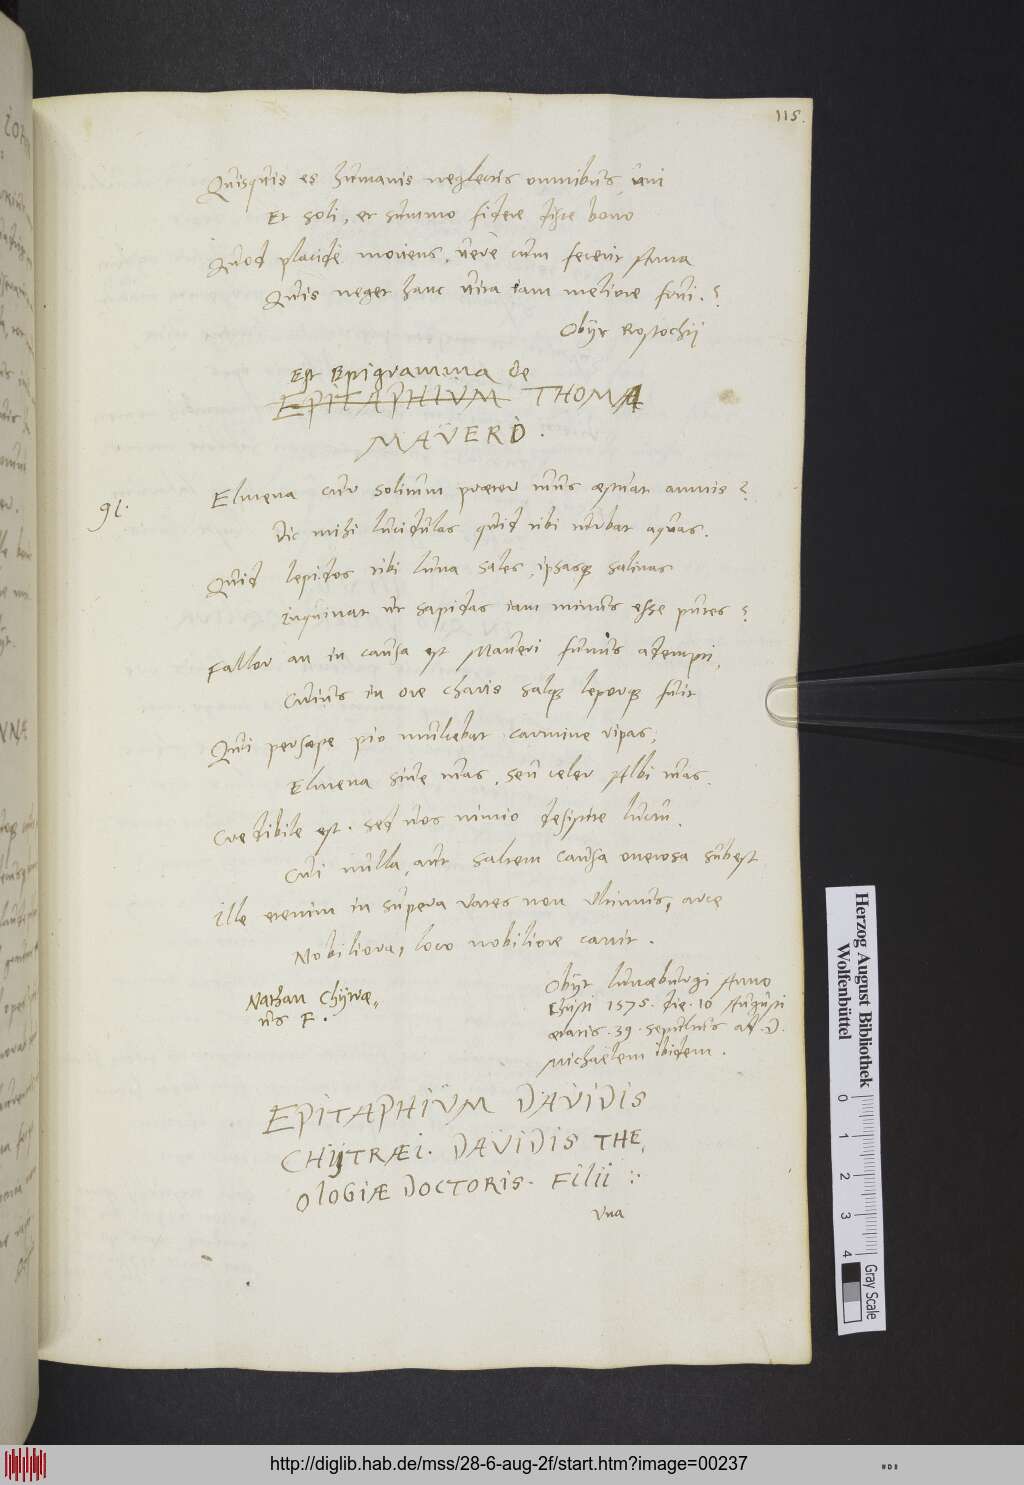 115.
Quisquis es humanis neglectis omnibus, uni
Et soli, et summo fidere disce bono
Quod placide moriens, vere cum fecerit Anna
Quis neget hanc vita iam meliore frui. ?
Obijt Rostochij
Est Epigramma de
EPITAPHIUM THOMA
MAUERO.
91.
Elmena cur solitum praeter tuus aestuat amnis ?
Dic mihi lucidulas quid tibi turbat aquas.
Quid lepidos tibi Luna sales, ipsasq salinas
Inquinat ut sapidas iam minus esse putes ?
Fallor an in causa est Maueri funus adempti,
Cuius in ore charis salq leporq fuit
Qui persaepe pio mulcebat carmine ripas,
Elmena siue tuas, seu celer Albi tuas.
Credibile est. sed nos nimio desistite luctu.
Cui nulla, aut saltem causa onerosa subest
Ille etenim in supera vates non ultimus, arce
Nobiliora, loco nobiliore canit.
Nathan Chijtrae,,
us F.
Obijt Lunaeburgi Anno
Christi 1575. die. 10 Augusti
aetatis. 39. sepultus ad. D.
Michaëlem ibidem.
EPITAPHIUM DAUIDIS
CHIJTRÆI. DAUIDIS THE,
OLOGIÆ DOCTORIS. FILII :
Una
Herzog August Bibliothek
Wolfenbüttel
0 1 2 3 4
Gray Scale
http://diglib.hab.de/mss/28-6-aug-2f/start.htm?image=00237